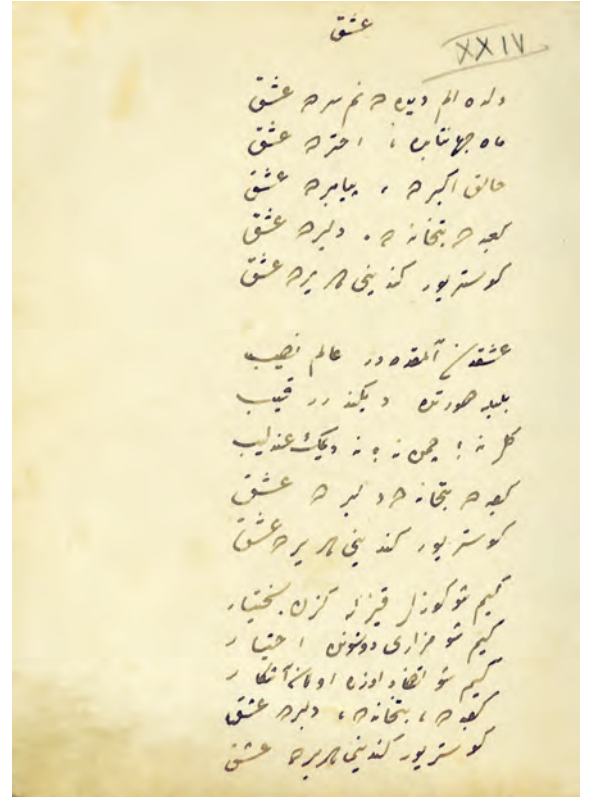 عشق
XXIV
دلده الم دیده ده نم سرده عشق
ماه جهانتابده ، اخترده عشق
خالق اكبرده ، پیامبرده عشق
كعبه ده بتخانه ده ، دلبرده عشق
كوستریور كندینی هر یرده عشق
عشقدن آلمقده در عالم نصیب
بلبله صورتده دیكندر رقیب
كل نه ؛ چمن نه ؛ نه دیمك عندلیب
كعبه ده بتخانه ده دلبرده عشق
كوستریور كندینی هر یرده عشق
كیم شو كوزل قیزله كزن بختیار
كیم شو مزاری دوشونن اختیار
كیم شو اوزه اولان آشكار
كعبه ده ، بتخانه ده ، دلبرده عشق
كوستریور كندینی هر یرده عشق